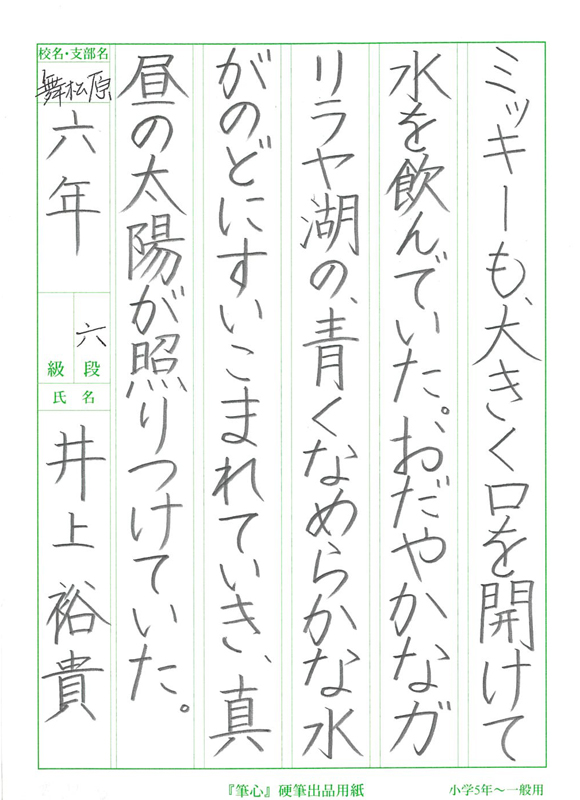 ミッキーも、大きく口を開けて
水を飲んでいた。おだやかなガ
リラヤ湖の、青くなめらかな水
がのどにすいこまれていき、真
昼の太陽が照りつけていた。
校名・支部名
舞松原
六年
六
級 段
氏名
井上裕貴
『筆心』硬筆出品用紙
小学5年～一般用